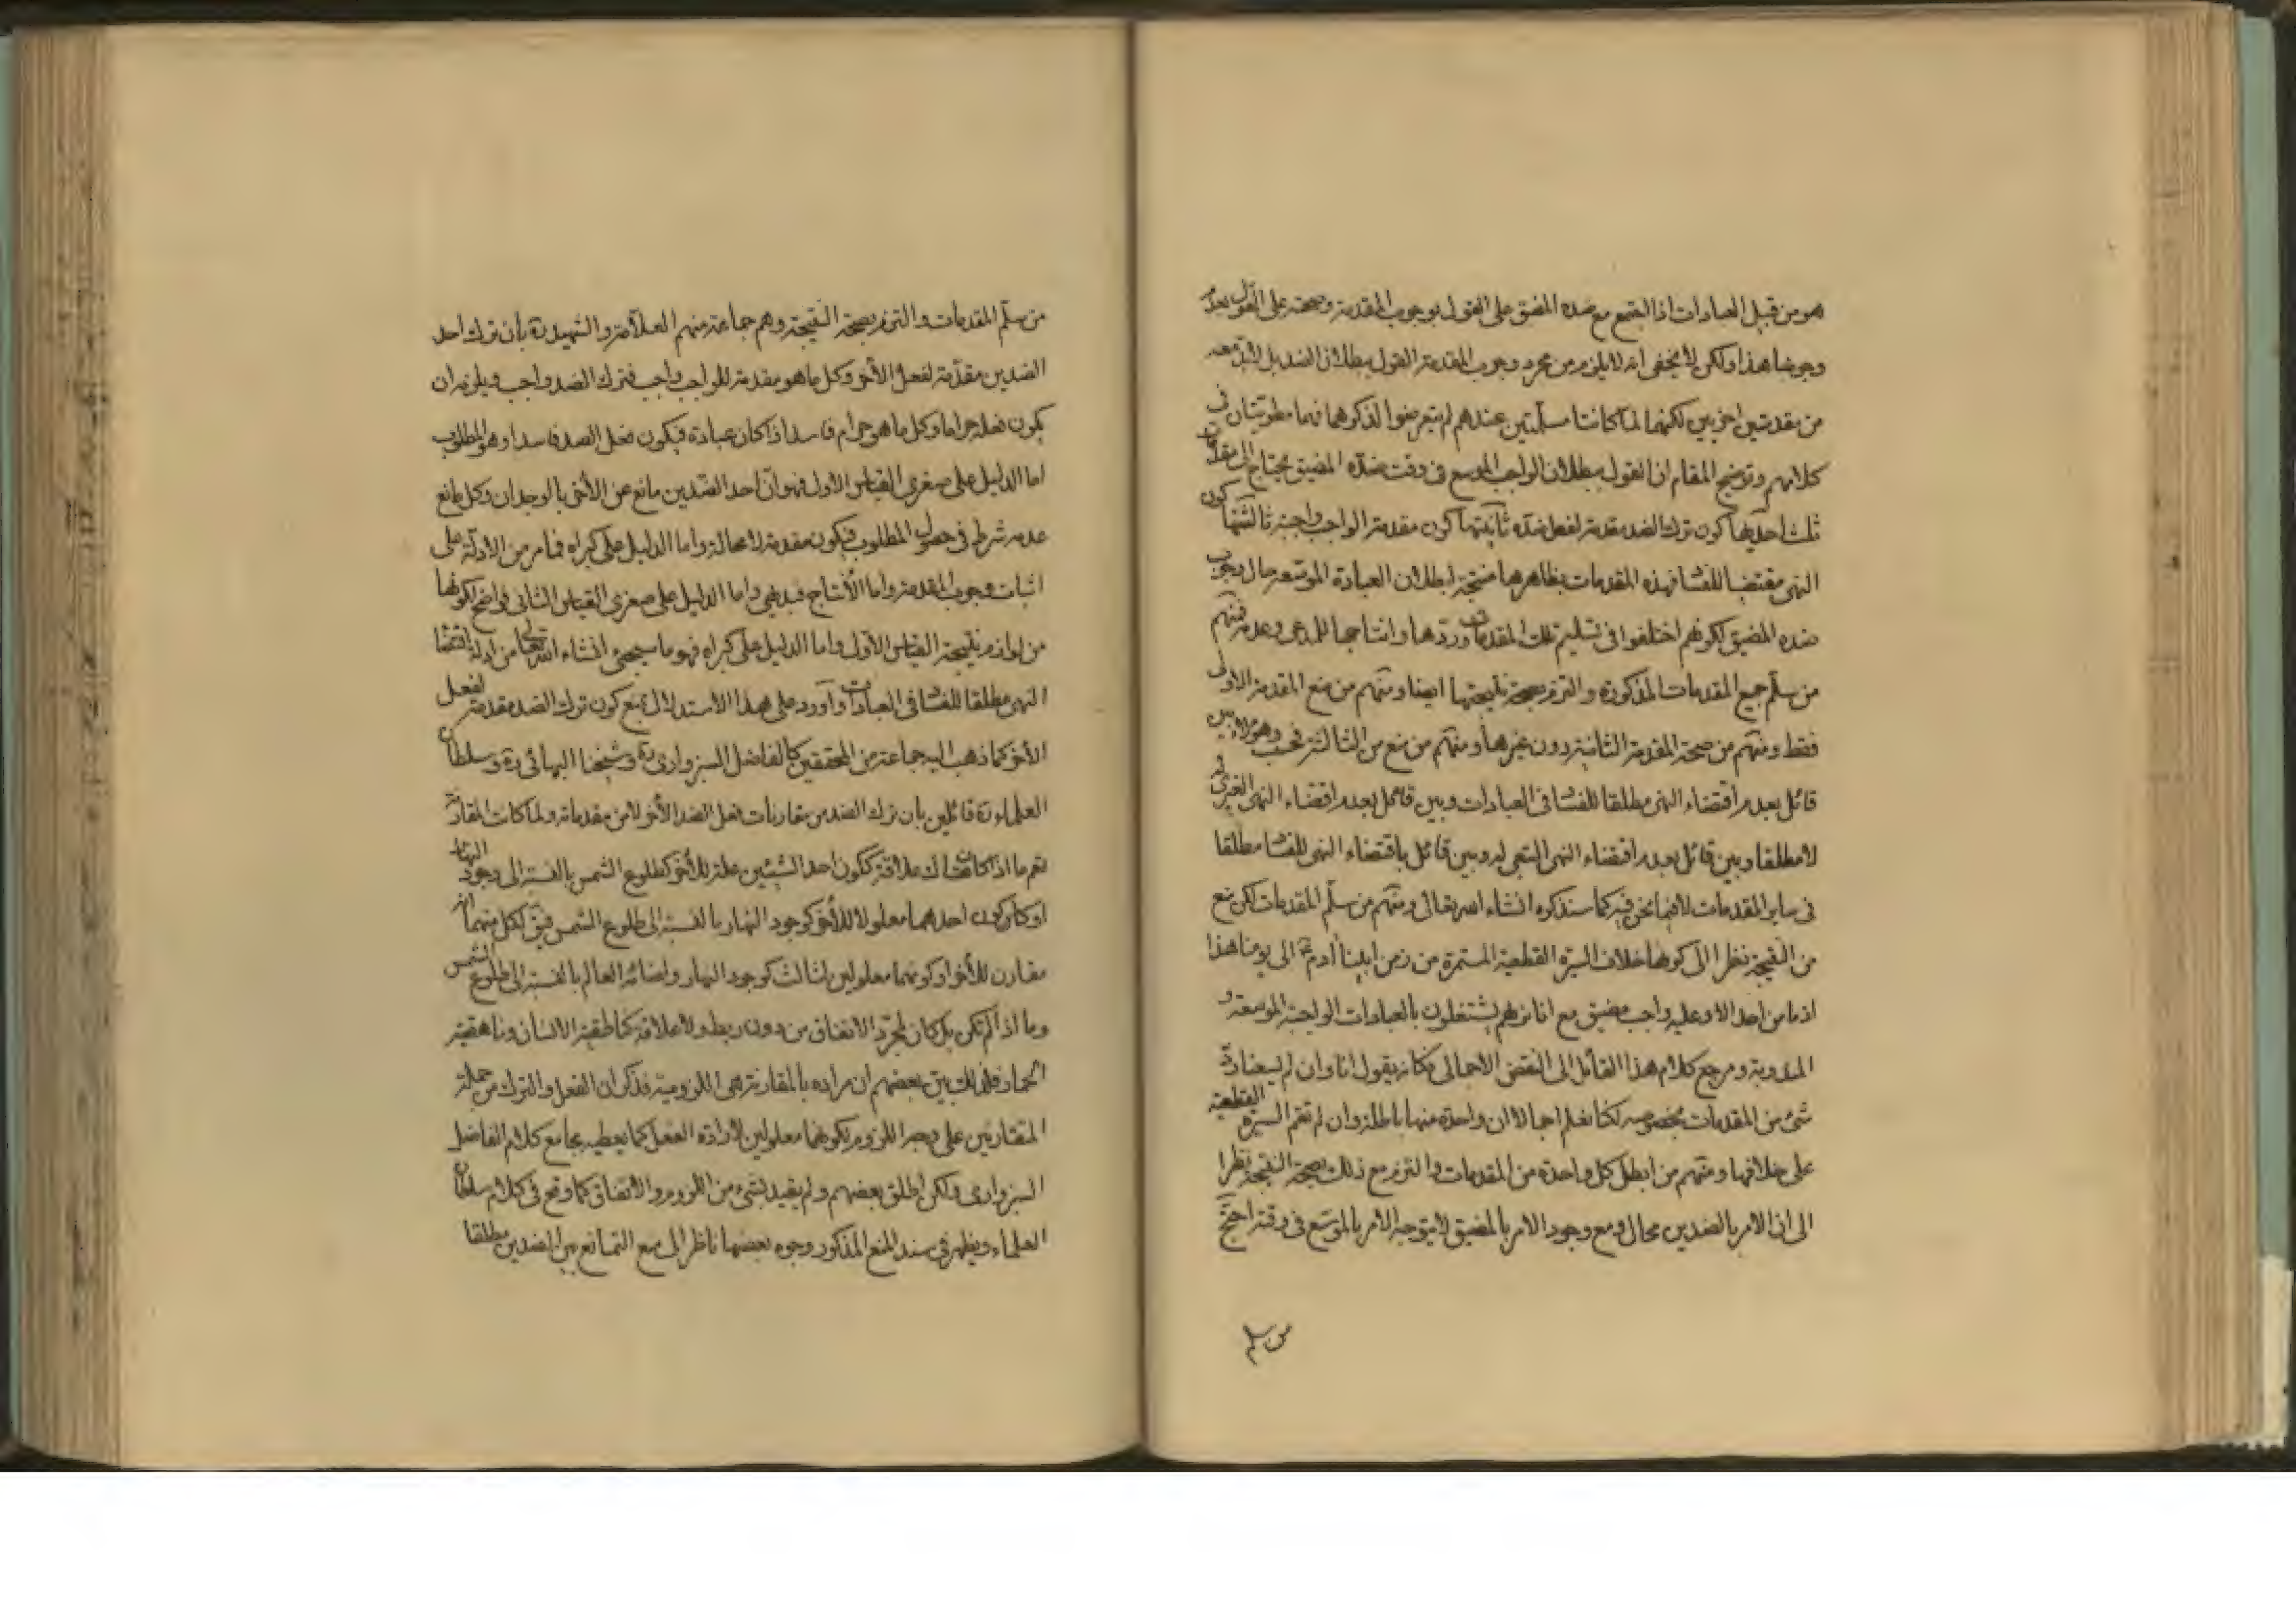 هو من قبيل العبادات اذا اجتمع مع ضده المضيق على القول بوجوب المقدمة وصحته على القول بعدم
وجوبها هذا ولكن لا يخفى انه لا يلزم من مجرد وجوب المقدمة القول ببطلان الضد بل لا بد معه
من مقدمتين اخريين لكنهما لما كانتا مسلمتين عندهم لم يتعرضوا لذكرهما فهما مطويتان في
كلامهم وتوضيح المقام ان القول ببطلان الواجب الموسع في وقت ضده المضيق يحتاج الى مقدمات
ثلث احديها كون ترك الضد مقدمة لفعل ضده ثانيتها كون مقدمة الواجب واجبة ثالثتها كون
النهي مقتضيا للفساد فهذه المقدمات بظاهرها منتجة لبطلان العبادة الموسعة حال وجوب
ضده المضيق لكونهم اختلفوا في تسليم تلك المقدمات وردها وانتاجها للمدعى وعدمه فمنهم
من سلم جميع المقدمات المذكورة والتزم بصحة نتيجتها ايضا ومنهم من منع المقدمة الاولى
فقط ومنهم من صحة المقدمة الثانية دون غيرها ومنهم من منع من الثالثة فحسب وهؤلاء بين
قائل بعدم اقتضاء النهي مطلقا للفساد في العبادات وبين قائل بعدم اقتضاء النهي الغيري له
لا مطلقا وبين قائل بعدم اقتضاء النهي التبعي له وبين قائل باقتضاء النهي للفساد مطلقا
في ساير المقدمات لا فيما نحن فيه كما سنذكره انشاء الله تعالى ومنهم من سلم المقدمات لكن منع
من النتيجة نظرا الى كونها خلاف السيرة القطعية المستمرة من زمن ابينا آدم ع الى يومنا هذا
اذ ما من احد الا وعليه واجب مضيق مع انا نريهم يشتغلون بالعبادات الواجبة الموسعة و
المندوبة ومرجع كلام هذا القائل الى النقض الاجمالي فكانه يقول انا وان لم يسعنا رد
شيء من المقدمات بخصوصه لكنا نعلم اجمالا ان واحدة منها باطلة وان لم تقم السيرة القطعية
على خلافها ومنهم من ابطل كل واحدة من المقدمات والتزم مع ذلك بصحة النتيجة نظرا
الى ان الامر بالضدين محال ومع وجود الامر بالمضيق لا يتوجه الامر بالموسع في وقته احتج
من سلم
من سلم المقدمات والتزم بصحة النتيجة وهم جماعة منهم العلامة والشهيد ره بأن ترك احد
الضدين مقدمة لفعل الأخر وكل ما هو مقدمة للواجب واجب فترك الضد واجب ويلزمه ان
يكون فعله حراما وكل ما هو حرام فاسد اذا كان عبادة فيكون فعل الضد فاسدا وهو المطلوب
اما الدليل على صغرى القياس الاول فهو ان احد الضدين مانع عن الأخر بالوجدان وكل مانع
عدمه شرط في حصول المطلوب فيكون مقدمة لا محالة واما الدليل على كبراه فما مر من الادلة على
اثبات وجوب المقدمة واما الأنتاج فبديهي واما الدليل على صغرى القياس الثاني فواضح لكونها
من لوازم نتيجة القياس الاول واما الدليل على كبراه فهو ما سيجيء انشاء الله تعالى من ادلة اقتضاء
النهي مطلقا للفساد في العبادات وأورد على هذا الاستدلال بمنع كون ترك الضد مقدمة لفعل
الأخر كما ذهب اليه جماعة من المحققين كالفاضل السبزواري ره وشيخنا البهائي ره وسلطان
العلماء ره قائلين بان ترك الضد من مقارنات فعل الضد الأخر لا من مقدماته ولما كانت المقارنة
تعم ما اذا كانت هناك علاقة ككون احد الشيئين علة للأخر كطلوع الشمس بالنسبة الى وجود النهار
او كان كون احدهما معلولا للأخر كوجود النهار بالنسبة الى طلوع الشمس لكل منهما انه
مقارن للأخر او كونهما معلولين لثالث كوجود النهار واضائة العالم بالنسبة الى طلوع الشمس
وما اذا لم تكن بل كان لمجرد الاتفاق من دون ربط ولا علاقة كناطقية الانسان وناهقية
الحمار فلذلك بين بعضهم ان مراده بالمقارنة هي اللزومية فذكر ان الفعل والترك من جملة
المتقارنين على وجه اللزوم لكونهما معلولين لارادة الفعل كما يعطيه مجامع كلام الفاضل
السبزواري ولكن اطلق بعضهم ولم يقيد بشيء من اللزوم والاتفاق كما وقع في كلام سلطان
العلماء ويظهر في سند المنع المذكور وجوه بعضها ناظر الى منع التمانع بين الضدين مطلقا